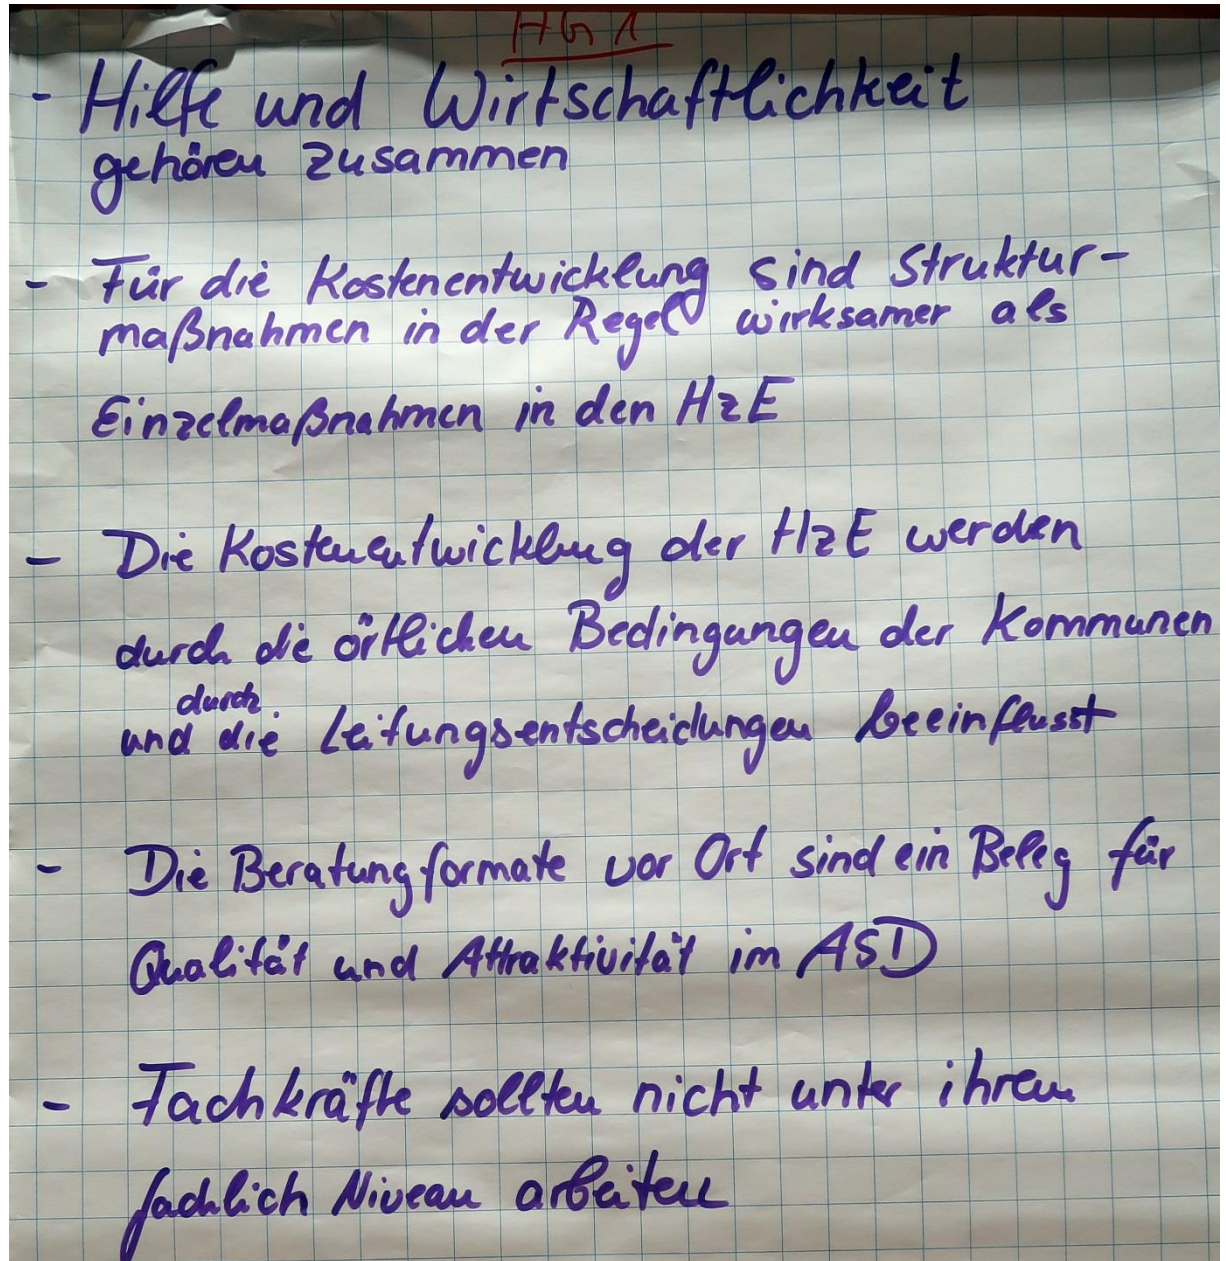 HG 1
- Hilfe und Wirtschaftlichkeit
gehören zusammen
- Für die Kostenentwicklung sind Struktur-
maßnahmen in der Regel wirksamer als
Einzelmaßnahmen in den HzE
- Die Kostenentwicklung der HzE werden
durch die örtlichen Bedingungen der Kommunen
durch
und die Leitungsentscheidungen beeinflusst
- Die Beratungformate vor Ort sind ein Beleg für
Qualität und Attraktivität im ASD
- Fachkräfte sollten nicht unter ihrem
fachlich Niveau arbeiten